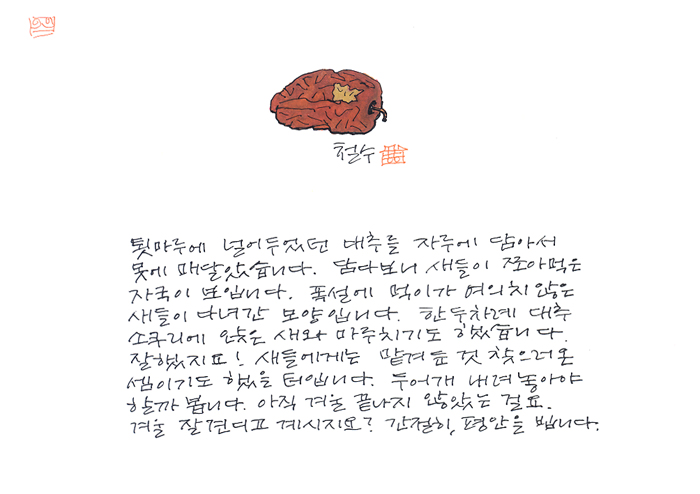 철수
툇마루에 널어두었던 대추를 자루에 담아서
못에 매달았습니다. 담다보니 새들이 쪼아먹은
자국이 보입니다. 폭설에 먹이가 여의치 않은
새들이 다녀간 모양입니다. 한두차례 대추
소쿠리에 앉은 새와 마주치기도 했습니다.
잘했지요! 새들에게는 맡겨둔 것 찾으러 온
셈이기도 했을 터입니다. 두어개 내려놓아야
할까 봅니다. 아직 겨울 끝나지 않았는 걸요.
겨울 잘 견디고 계시지요? 간절히, 평안을 빕니다.